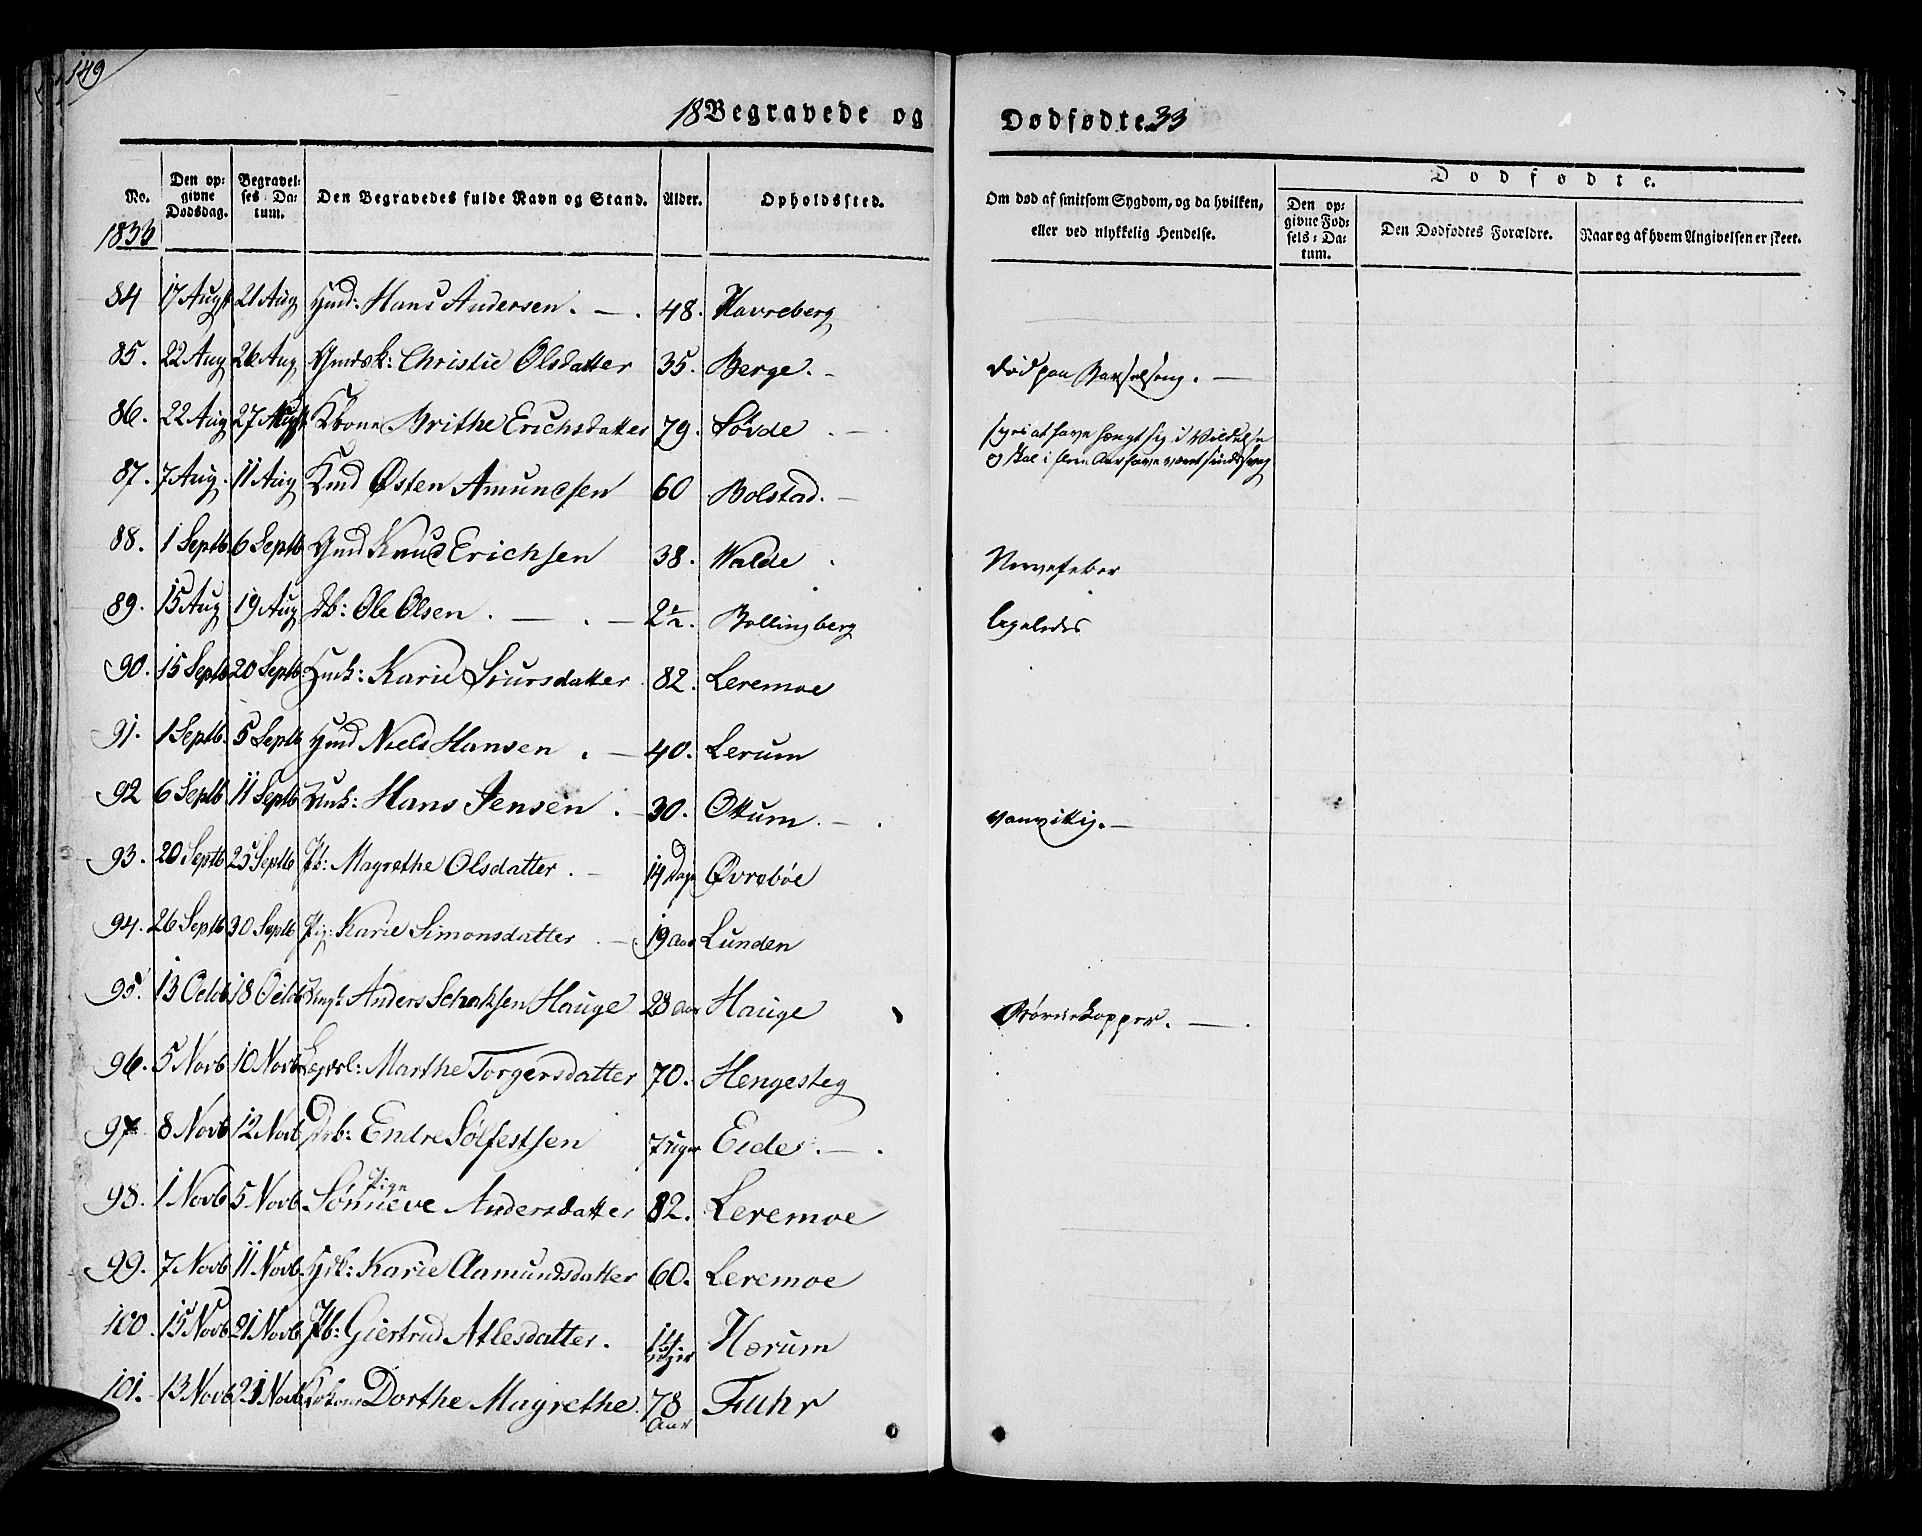 149
18 Begravede og Dødfødte. 33
No.
Den op-
givne
Dødsdag.
Begravel-
ses-Da-
tum.
Den Begravedes fulde Navn og Stand.
Alder.
Opholdssted.
Om død af smitsom Sygdom, og da hvilken,
eller ved ulykkelig Hendelse.
Dødfødte.
Den op-
givne Fød-
sels-Da-
tum.
Den Dødfødtes Forældre.
Naar og af hvem Angivelsen er skeet.
1833
84 17 Augt 21 Aug Gmd: Hans Andersen. 48. Havreberg
85. 22 Aug 26 Aug Gmdsk: Christie Olsdatter 35. Berge. Død paa Barselseng.
86. 22 Aug 27 Augt Kkone Brithe Erichsdatter 79. Sövde
siges at have hængt sig i Vildelse
og skal i flere Aar have været sindssvag
87. 7 Aug. 11 Aug Kmd Østen Amundsen 60 Bolstad.
88. 1 Septb 6 Septb Gmd Knud Erichsen 38. Walde Nervefeber
89. 15 Aug 19 Aug Db: Ole Olsen 2½. Bollingberg ligeledes
90. 15 Septb 20 Septb Hmk: Karie Siursdatter 82. Leremoe
91. 1 Septb. 5 Septb Gmd Niels Hansen 40. Lerum
92 6 Septb 11 Septb Unk: Hans Jensen 30. Ottum. vanvittig.
93. 20 Septb 25 Septb Pb: Magrethe Olsdatter. 14 Dage Øvrebøe
94. 26 Septb 30 Septb Pig: Karie Simonsdatter 19 Aar Lunden
95. 13 Octb 18 Octb Ungk: Anders Schaksen Hauge 28 Aar Hauge Börnekopper.
96. 5 Novb 10 Novb Lægdsl: Marthe Torgersdatter 70. Hengesteg
97 8 Novb 12 Novb Drb: Endre Sölfestsen 7 Uger Eide.
98. 1 Novb 5 Novb Pige Sönneve Andersdatter 82. Leremoe
99. 7 Novb 11 Novb Karie Aamundsdatter 60. Leremoe
100. 15 Novb 21 Novb Pb: Giertrud Atlesdatter. 14 Uger Hærum
101. 13 Novb 21 Novb Dorthe Magrethe. 78 Aar Fuhr